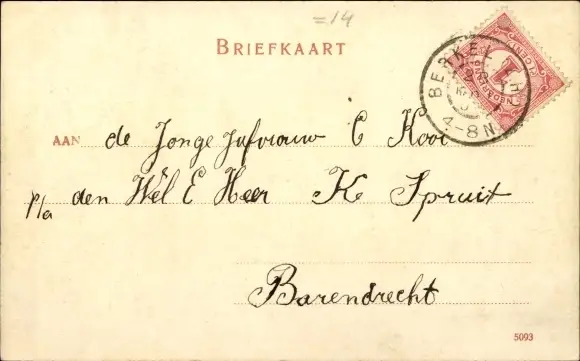 =14
BRIEFKAART
BERKEL
4-8N
1
AAN de Jonge Jufvrouw C Kooi
p/a den Wel E Heer K Spruit
Barendrecht
5093